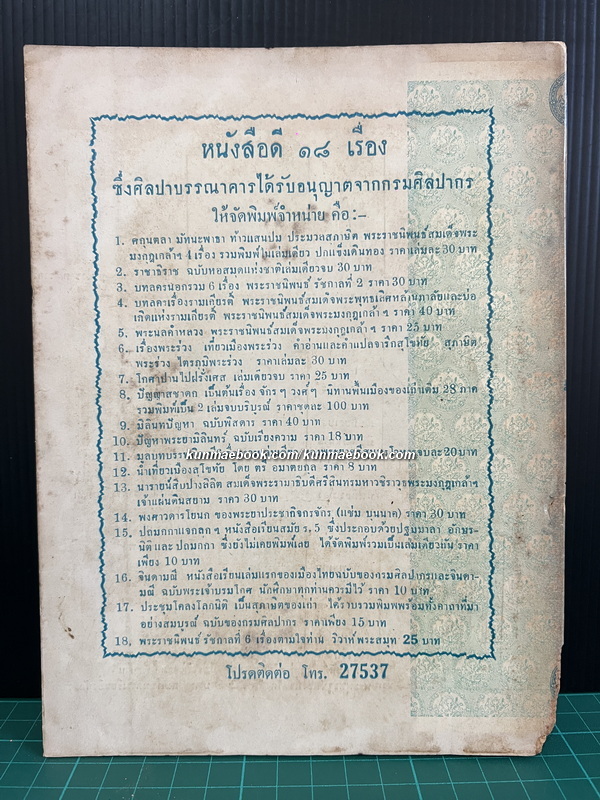 หนังสือดี ๑๘ เรื่อง
ซึ่งศิลปาบรรณาคารได้รับอนุญาตจากกรมศิลปากร
ให้จัดพิมพ์จำหน่าย คือ:-
1. ศกุนตลา มัทนะพาธา ท้าวแสนปม ประมวลสุภาษิต พระราชนิพนธ์สมเด็จพระ
มงกุฎเกล้าฯ 4 เรื่อง รวมพิมพ์ในเล่มเดียว ปกแข็งเดินทอง ราคาเล่มละ 30 บาท
2. ราชาธิราช ฉบับหอสมุดแห่งชาติเล่มเดียวจบ 30 บาท
3. บทละครนอกรวม 6 เรื่อง พระราชนิพนธ์ รัชกาลที่ 2 ราคา 30 บาท
4. บทละคอนเรื่องรามเกียรติ์ พระราชนิพนธ์สมเด็จพระพุทธเลิศหล้านภาลัยและบ่อ
เกิดแห่งรามเกียรติ์ พระราชนิพนธ์สมเด็จพระมงกุฎเกล้า ฯ ราคา 40 บาท
5. พระนลคำหลวง พระราชนิพนธ์สมเด็จพระมงกุฎเกล้า ฯ ราคา 25 บาท
6. เรื่องพระร่วง เที่ยวเมืองพระร่วง คำอ่านและคำแปลจารึกสุโขทัย สุภาษิต
พระร่วง ไตรภูมิพระร่วง ราคาเล่มละ 30 บาท
7. โกศาปานไปฝรั่งเศส เล่มเดียวจบ ราคา 25 บาท
8. ปัญญาสชาดก เป็นต้นเรื่อง จักร ๆ วงศ์ ๆ นิทานพื้นเมืองของเก่าเดิม 28 ภาค
รวมพิมพ์เป็น 2 เล่มจบบริบูรณ์ ราคาชุดละ 100 บาท
9. มิลินทปัญหา ฉบับพิสดาร ราคา 40 บาท
10. ปัญหาพระยามิลินทร์ ฉบับเรียงความ ราคา 18 บาท
kunmaebook.com/kunmaebook.com/
11. มูลบทบรรพ จบละ 20 บาท
12. นำเที่ยวเมืองสุโขทัย โดย ตรี อมาตยกุล ราคา 8 บาท
13. นารายณ์สิบปางลิลิต สมเด็จพระรามาธิบดีศรีสินทรมหาวชิราวุธพระมงกุฎเกล้าฯ
เจ้าแผ่นดินสยาม ราคา 30 บาท
14. พงศาวดารโยนก ของพระยาประชากิจกรจักร (แช่ม บุนนาค) ราคา 30 บาท
15. ปฐมกกาแจกลูก ฯ หนังสือเรียนสมัย ร. 5 ซึ่งประกอบด้วยปฐมมาลา อักษร-
นิติ และ ปฐมกกา ซึ่งยังไม่เคยพิมพ์เลย ได้จัดพิมพ์รวมเป็นเล่มเดียวกัน ราคา
เพียง 10 บาท
16. จินดามณี หนังสือเรียนเล่มแรกของเมืองไทยฉบับของกรมศิลปากรและจินดา-
มณี ฉบับพระเจ้าบรมโกศ นักศึกษาทุกท่านควรมีไว้ ราคา 10 บาท
17. ประชุมโคลงโลกนิติ เป็นสุภาษิตของเก่า ได้รวบรวมพิมพ์พร้อมทั้งคาถาที่มา
อย่างสมบูรณ์ ฉบับของกรมศิลปากร ราคาเพียง 15 บาท
18. พระราชนิพนธ์ รัชกาลที่ 6 เรื่องตามใจท่าน วิวาห์พระสมุท 25 บาท
โปรดติดต่อ โทร. 27537